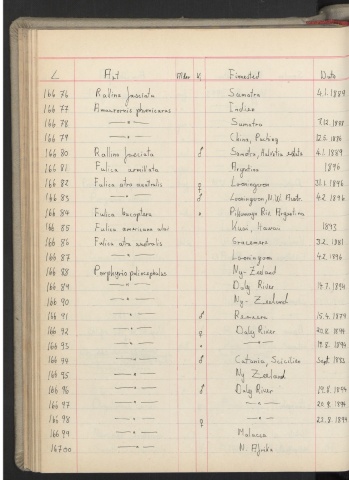 L Art Alder K. Finnested Dato
166 76 Rallina fasciata Sumatra 4.1.1889
166 77 Amaurornis phoenicurus Indien
166 78 —"— Sumatra 7.12.1888
166 79 —"— China, Peking
166 80 Rallina fasciata ♂ Sumatra, Helvetia 4.1.1889
166 81 Fulica armillata Argentina 1896
166 82 Fulica atra australis ♀ Loomingoon 31.1.1896
166 83 —"— ♂ Loomingoon, N.W. Austr. 4.2.1896
166 84 Fulica leucoptera " Pilcomayo Riv. Argentina
166 85 Fulica americana alai Kuai, Hawai 1893
166 86 Fulica atra australis Gracemere 3.2.1881
166 87 —"— Loomingoon 4.2.1896
166 88 Porphyrio poliocephalus Ny-Zeeland
166 89 —"— Daly River 14.7.1894
166 90 —"— Ny-Zeeland
166 91 —"— ♂ Remuera 15.4.1879
166 92 —"— ♀ Daly River 20.8.1894
166 93 —"— " —"— 19.8.1894
166 94 —"— ♂ Catania, Scicilien Sept. 1883
166 95 —"— Ny Zeeland
166 96 —"— ♂ Daly River 19.8.1894
166 97 —"— —"— 20.8.1894
166 98 —"— ♀ —"— 23.8.1894
166 99 —"— Malacca
167 00 —"— N. Afrika